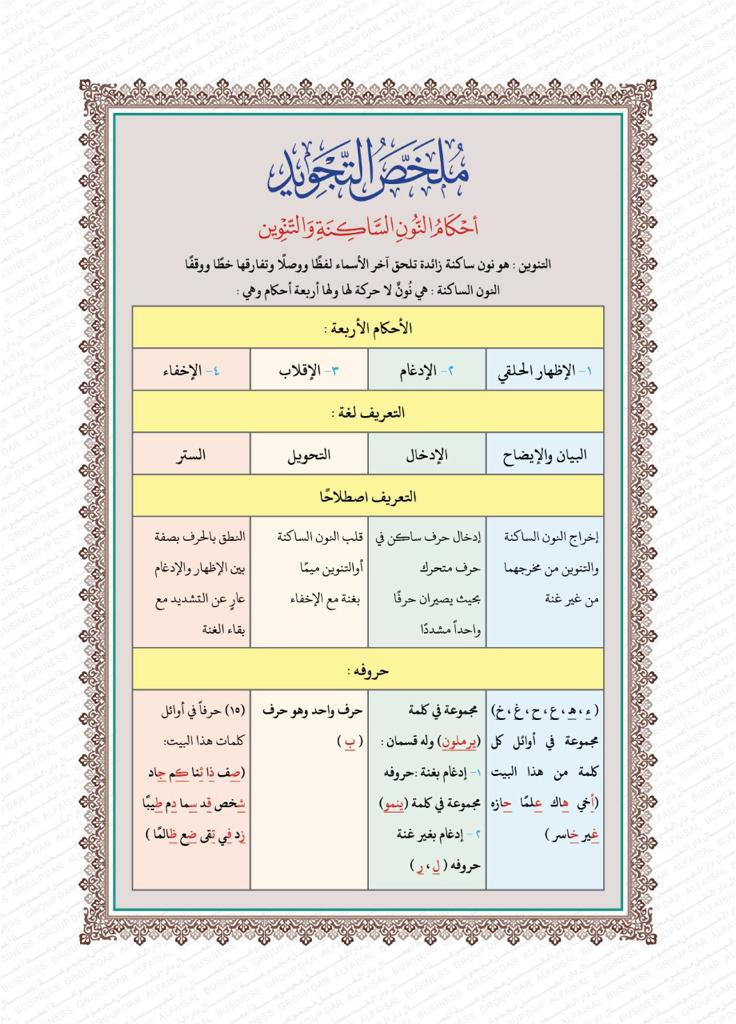 مُلَخَّصُ التَّجْوِيد
أَحْكَامُ النُّونِ السَّاكِنَةِ وَالتَّنْوِين
التنوين : هو نون ساكنة زائدة تلحق آخر الأسماء لفظًا ووصلًا وتفارقها خطًا ووقفًا
النون الساكنة : هي نُونٌ لا حركة لها ولها أربعة أحكام وهي :
الأحكام الأربعة :
١- الإظهار الحلقي
٢- الإدغام
٣- الإقلاب
٤- الإخفاء
التعريف لغة :
البيان والإيضاح
الإدخال
التحويل
الستر
التعريف اصطلاحًا
إخراج النون الساكنة
والتنوين من مخرجهما
من غير غنة
إدخال حرف ساكن في
حرف متحرك
بحيث يصيران حرفًا
واحداً مشددًا
قلب النون الساكنة
أوالتنوين ميمًا
بغنة مع الإخفاء
النطق بالحرف بصفة
بين الإظهار والإدغام
عارٍ عن التشديد مع
بقاء الغنة
حروفه :
( ء، هـ، ع، ح، غ، خ)
مجموعة في أوائل كل
كلمة من هذا البيت
(أخي هاك علمًا حازه
غير خاسر )
مجموعة في كلمة
(يرملون) وله قسمان :
١- إدغام بغنة :حروفه
مجموعة في كلمة (ينمو)
٢- إدغام بغير غنة
حروفه ( ل ، ر )
حرف واحد وهو حرف
( ب )
(١٥) حرفاً في أوائل
كلمات هذا البيت:
(صف ذا ثنا كم جاد
شخص قد سما دم طيبًا
زد في تقى ضع ظالمًا )
ALFAISAL BUSINESS GROUP DAR